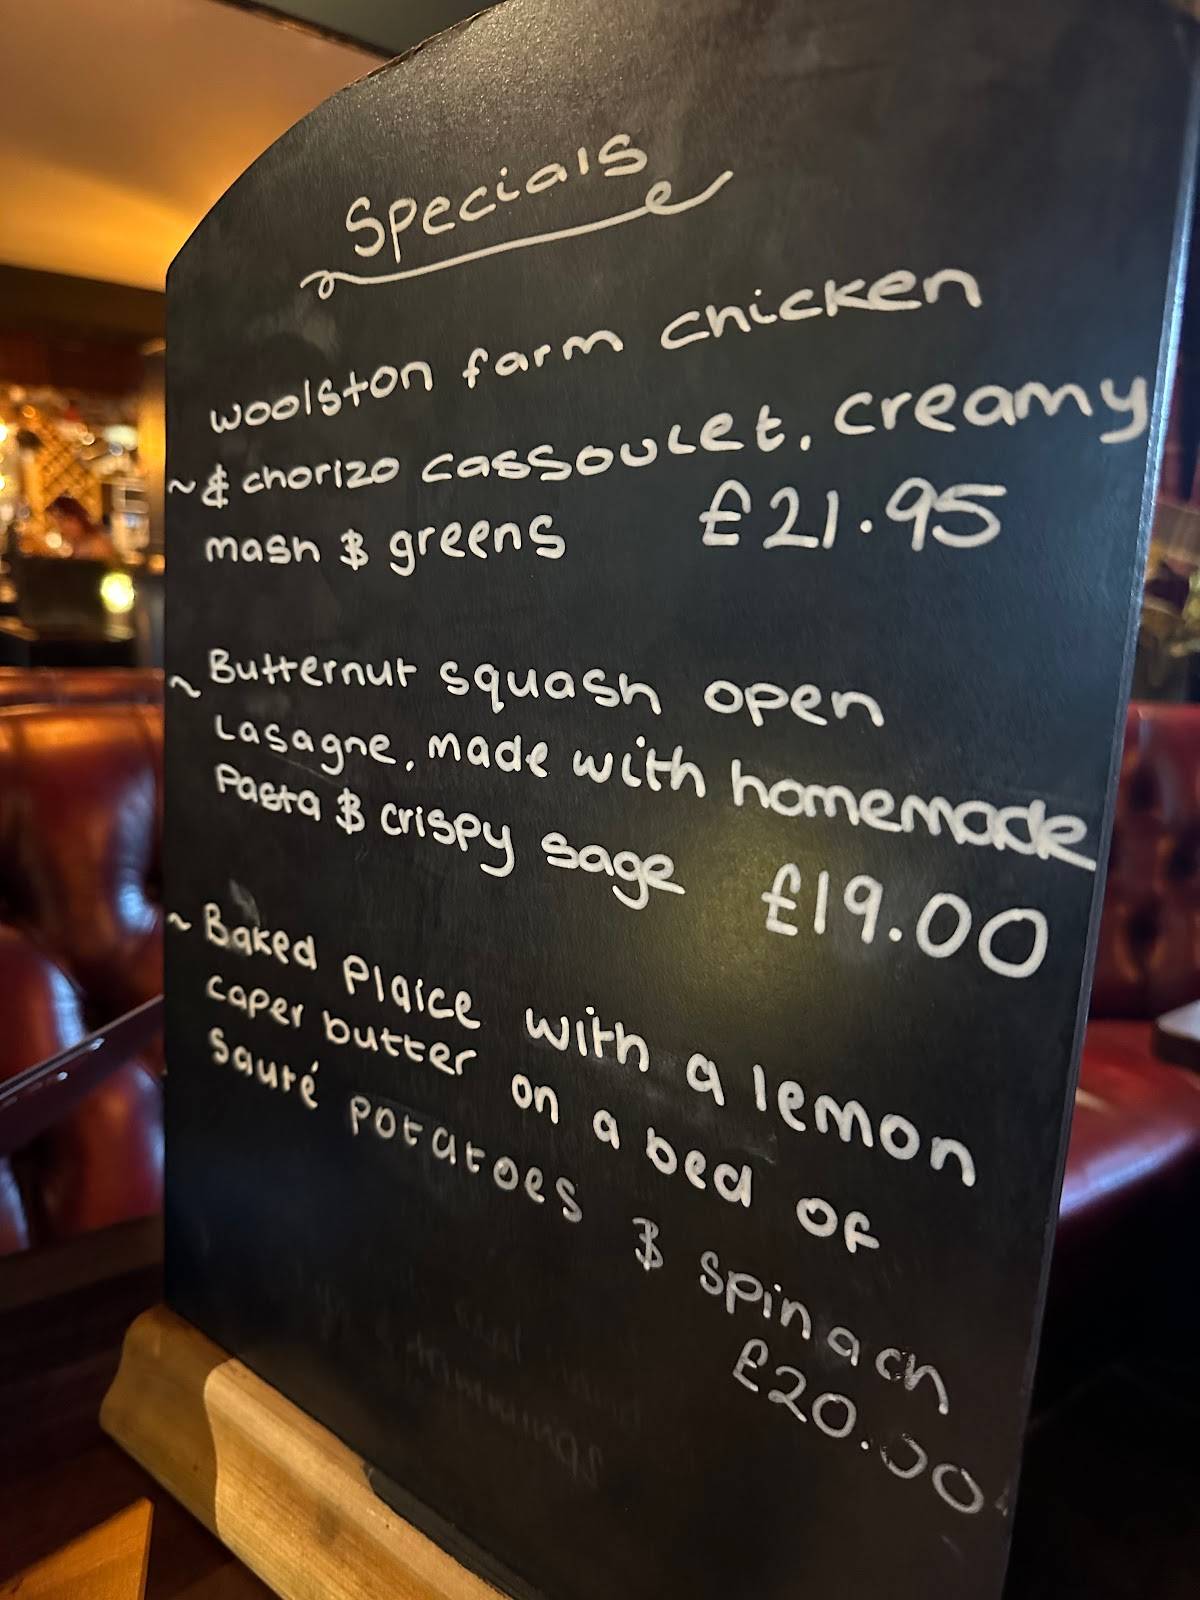 Specials
woolston farm chicken
~ & chorizo cassoulet, creamy
mash & greens £21.95
~ Butternut squash open
Lasagne, made with homemade
Pasta & crispy sage £19.00
~ Baked Plaice with a lemon
caper butter on a bed of
sauté potatoes & spinach
£20.00